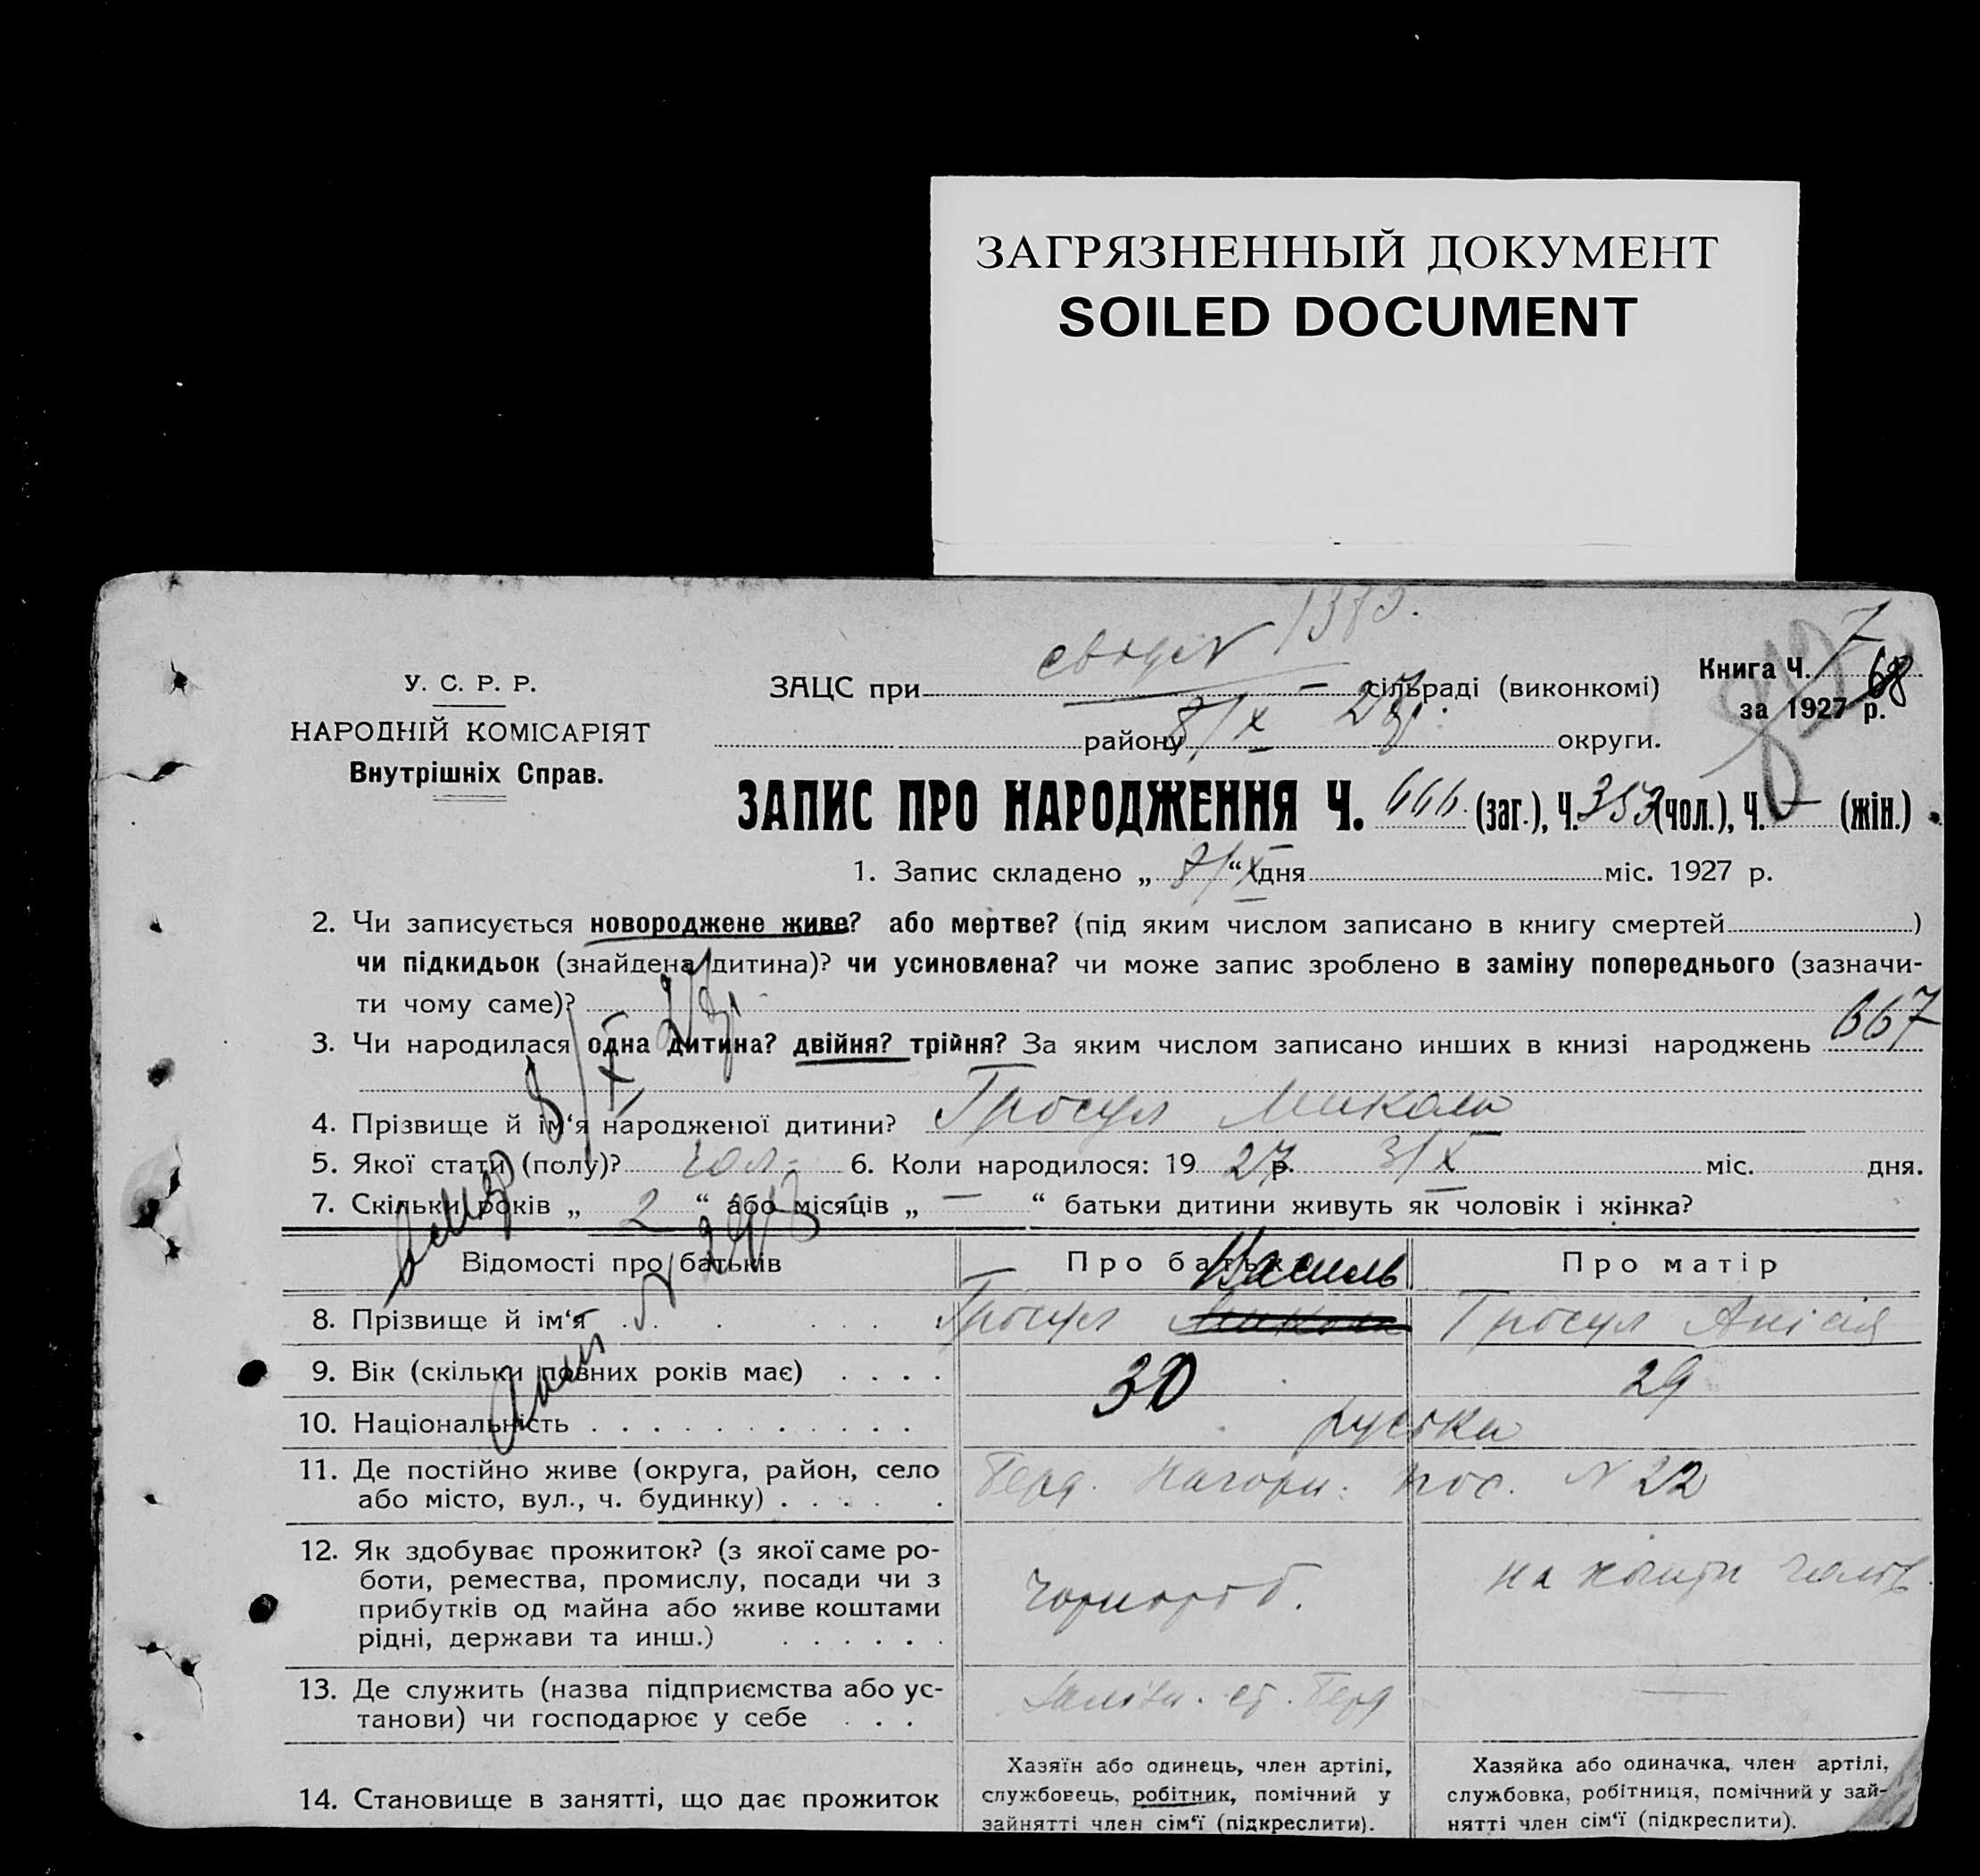 ЗАГРЯЗНЕННЫЙ ДОКУМЕНТ
SOILED DOCUMENT
У. С. Р. Р.
НАРОДНІЙ КОМІСАРІЯТ
Внутрішніх Справ.
ЗАЦС при сільраді (виконкомі)
району 8/X 27 округи.
Книга Ч. 7 68
за 1927 р.
ЗАПИС ПРО НАРОДЖЕННЯ Ч. 666. (заг.), Ч. 353 (чол.), Ч. — (жін.)
1. Запис складено „ 8/X “ дня міс. 1927 р.
2. Чи записується новороджене живе? або мертве? (під яким числом записано в книгу смертей )
чи підкидьок (знайдена дитина)? чи усиновлена? чи може запис зроблено в заміну попереднього (зазначи-
ти чому саме)?
3. Чи народилася одна дитина? двійня? трійня? За яким числом записано инших в книзі народжень 667
4. Прізвище й ім‘я народженої дитини? Тросул Микола
5. Якої стати (полу)? чол. 6. Коли народилося: 19 27 р. 3/X міс. дня.
7. Скільки років „ 2 “ або місяців „ — “ батьки дитини живуть як чоловік і жінка?
Відомості про батьків
Про батька
Про матір
Василь
8. Прізвище й ім‘я Тросул Микола Тросул Анісія
9. Вік (скільки повних років має) 30 29
10. Національність руські
11. Де постійно живе (округа, район, село
або місто, вул., ч. будинку) Берд. Нагорн. пос. N 22
12. Як здобуває прожиток? (з якої саме ро-
боти, ремества, промислу, посади чи з
прибутків од майна або живе коштами
рідні, держави та инш.)
чорнороб.
на кошти чолов.
13. Де служить (назва підприємства або ус-
танови) чи господарює у себе
Залізн. ст. Берд
—
14. Становище в занятті, що дає прожиток
Хазяїн або одинець, член артілі,
службовець, робітник, помічний у
зайнятті член сім‘ї (підкреслити).
Хазяйка або одиначка, член артілі,
службовка, робітниця, помічний у зай-
нятті член сім‘ї (підкреслити).